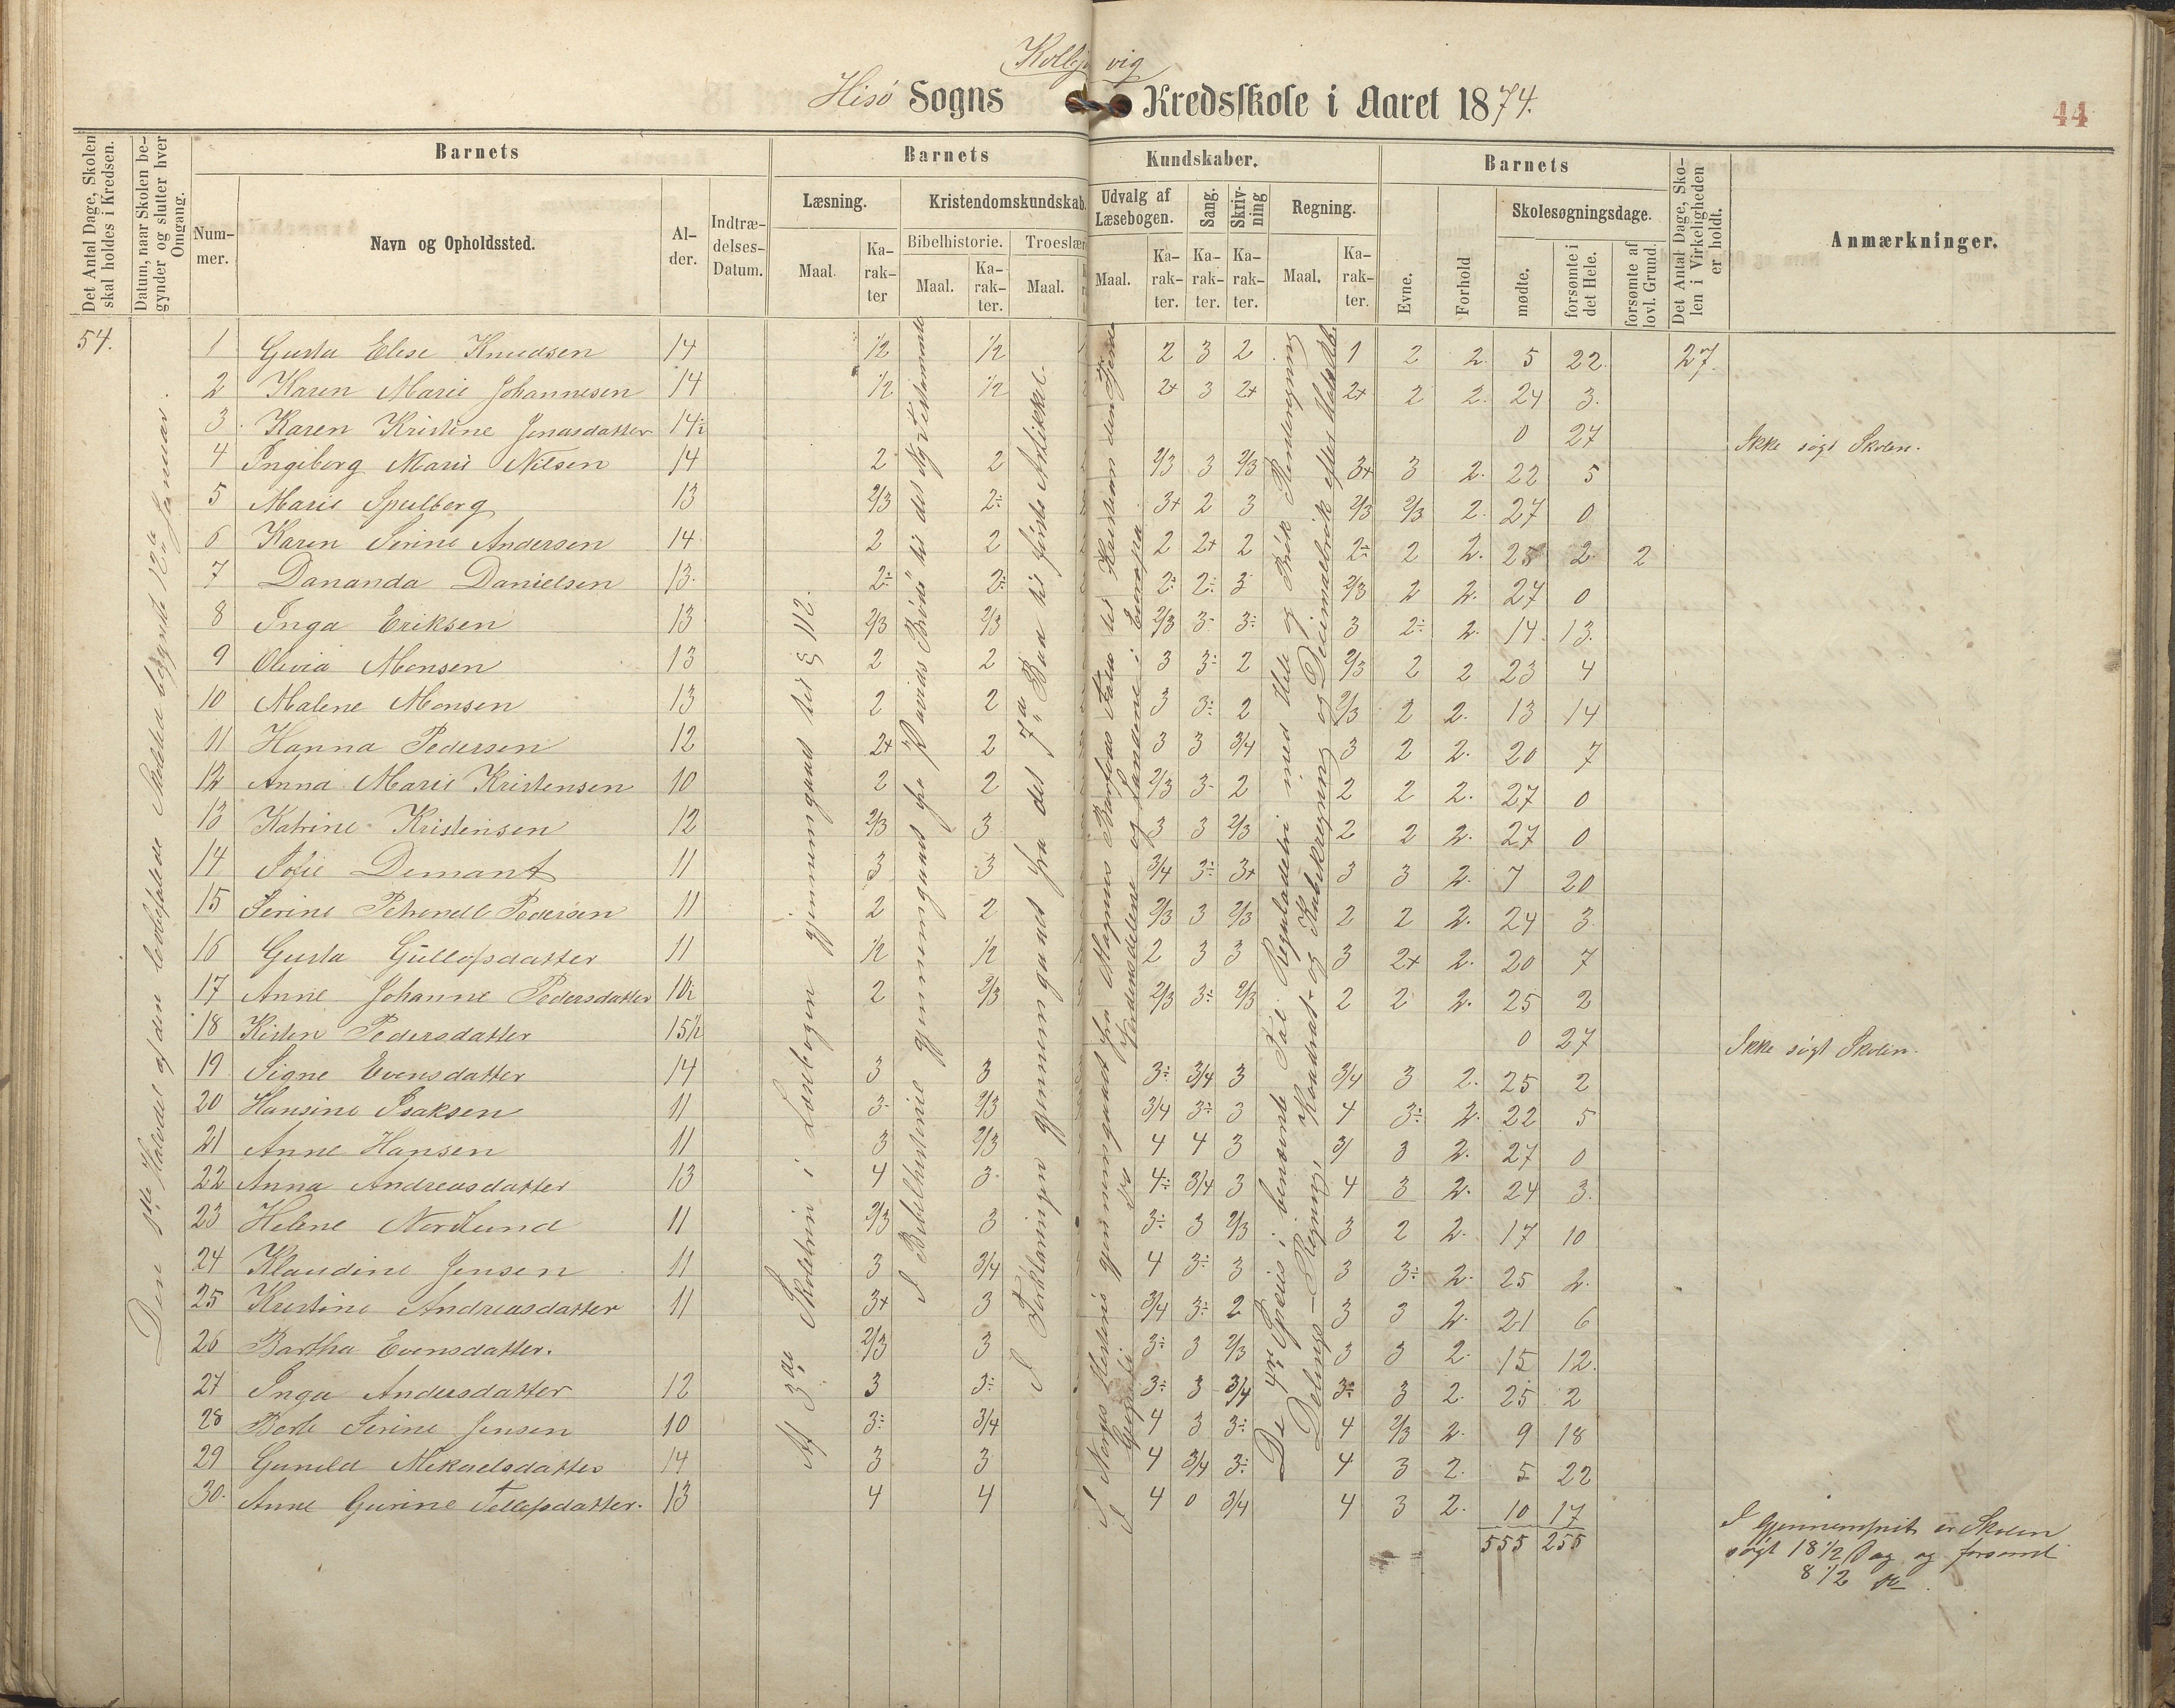 Kolbjørnsvig
Hisø Sogns Kredsskole i Aaret 1874.
44
Det Antal Dage, Skolen skal holdes i Kredsen.
Datum, naar Skolen begynder og slutter hver Omgang.
Barnets
Barnets
Kundskaber.
Barnets
Det Antal Dage, Skolen i Virkeligheden er holdt.
Anmærkninger.
Nummer.
Navn og Opholdssted.
Alder.
Indtrædelses-Datum.
Læsning.
Kristendomskundskab.
Udvalg af Læsebogen.
Sang.
Skrivning
Regning.
Evne.
Forhold
Skolesøgningsdage.
Bibelhistorie.
Troeslære
Maal.
Karakter
Maal.
Karakter.
Maal.
Maal.
Karakter.
Karakter.
Karakter.
Maal.
Karakter.
mødte.
forsømte i det Hele.
forsømte af lovl. Grund.
54.
Den 1ste Halvdel af den lovbefalede Skoletid begyndte 12te Januar.
Af 3die Skoletrin i Læsebogen gjennemgaaet til § 112.
I Bibelhistorie gjennemgaaet fra "Davids Brøde" til det Ny Testamente
I Forklaringen gjennemgaaet fra det 7de Bud til første Artikkel.
1 Gusta Elise Knudsen 14 1/2 1/2 2 3 2 1 2 2. 5 22. 27.
2 Karen Marie Johannesen 14 1/2 1/2 2+ 3 2+ 2+ 2 2. 24 3.
3. Karen Kristine Jonasdatter 14½ 0 27 Ikke søgt Skolen.
4 Ingiborg Marie Nilsen 14 2 2 2/3 3 2/3 3+ 3 2. 22 5
5 Marie Spilberg 13 2/3 2÷ 3+ 2 3 2/3 2/3 2. 27 0
6 Karen Serine Andersen 14 2 2 2 2+ 2 2÷ 2 2. 25 2 2
7 Dananda Danielsen 13. 2÷ 2÷ 2÷ 2÷ 3 2/3 2 2. 27 0
8 Inga Eriksen 13 2/3 2/3 2/3 3- 3÷ 3 2÷ 2. 14 13.
9 Olivia Monsen 13 2 2 3 3÷ 2 2/3 2 2 23 4
10 Malene Monsen 13 2 2 3 3÷ 2 2/3 2 2. 13 14
11 Hanna Pedersen 12 2+ 2 3 3 3/4 3 2 2. 20 7
12 Anna Marie Kristensen 10 2 2 2/3 3- 2 2 2 2. 27 0
13 Katrine Kristensen 12 2/3 3 3 3 2/3 2 2 2. 27 0
14 Sofie Demant 11 3 3 3/4 3÷ 3+ 3 3 2. 7 20
15 Serine Petrendle Pedersen 11 2 2 2/3 3 2/3 2 2 2. 24 3
16 Gusta Gullofsdatter 11 1/2 1/2 2 3 3 3 2+ 2. 20 7
17 Anne Johanne Pedersdatter 10½ 2 2/3 2/3 3÷ 2/3 2 2 2. 25 2
18 Kisten Pedersdatter 15½ 0 27 Ikke søgt Skolen.
19 Signe Evensdatter 14 3 3 3÷ 3/4 3 3/4 3 2. 25 2
20 Hansine Isaksen 11 3- 2/3 3/4 3÷ 3 4 3÷ 2. 22 5
21 Anne Hansen 11 3 2/3 4 4 3 3/ 3 2. 27 0
22 Anna Andreasdatter 13 4 3- 4÷ 3/4 3 4 3 2. 24 3.
23 Helene Nordlund 11 2/3 3 3÷ 3 2/3 3 2 2. 17 10
24 Klaudine Jensen 11 3 3/4 4 3÷ 3 3 3÷ 2. 25 2.
25 Kristine Andreasdatter 11 3+ 3 3/4 3÷ 2 3 3 2. 21 6
26 Bartha Evensdatter. 2/3 3 3÷ 3 2/3 3 3 2. 15 12.
27 Inga Andersdatter 12 3 3÷ 3÷ 3 3/4 3÷ 3 2. 25 2
28 Berte Serine Jensen 10 3÷ 3/4 4 3 3÷ 4 2/3 2. 9 18
29 Gunild Mikaelsdatter 14 3 3 4 3/4 3÷ 4 3 2. 5 22
30. Anne Gurine Tellefsdatter. 13 4 4 4 0 3/4 4 3 2. 10 17
555 255
I Norges Historie gjennemgaaet fra Magnus Barfods Fald til Kristian den Fjerde
I Geografi Jordinddelelse og Landene i Europa
De 4re Species i benævnte Tal. Reguladetri med Hele og Brøk Renteregning
Delings-Regning, Kvadrat- og Kubikregning og Decimalbrøk efter
I Gjennemsnit er Skolen
søgt 18 1/2 Dag og forsømt
8 1/2 D.